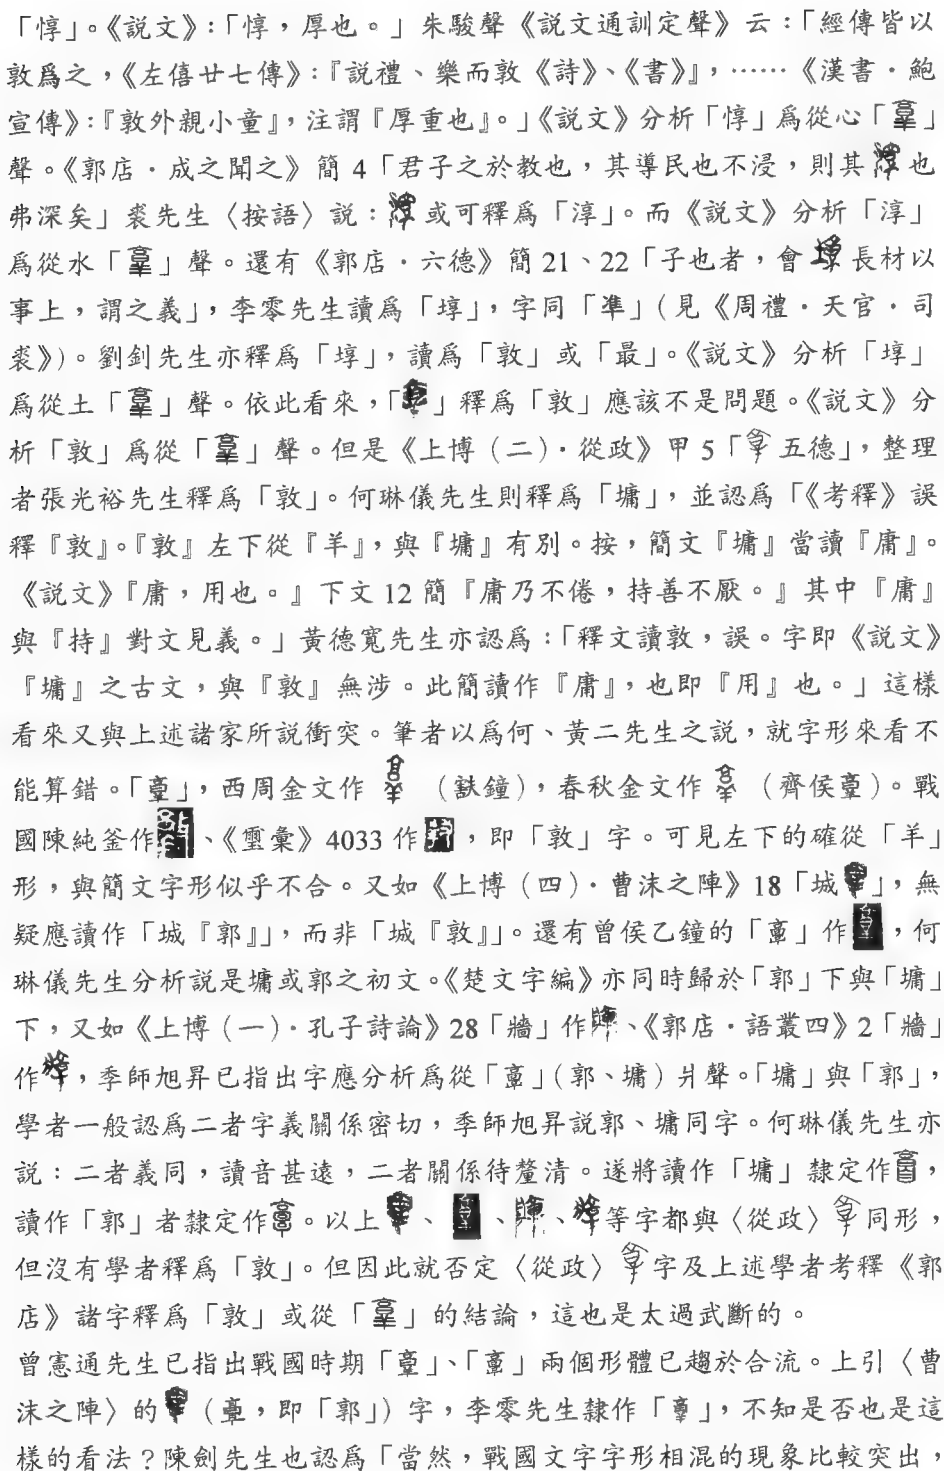 「惇」。《説文》：「惇，厚也。」朱駿聲《説文通訓定聲》云：「經傳皆以
敦爲之，《左僖廿七傳》：『説禮、樂而敦《詩》、《書》』，……《漢書．鮑
宣傳》：『敦外親小童』，注謂『厚重也』。」《説文》分析「惇」爲從心「𦎫」
聲。《郭店．成之聞之》簡 4「君子之於教也，其導民也不浸，則其也
弗深矣」裘先生〈按語〉説：或可釋爲「淳」。而《説文》分析「淳」
爲從水「𦎫」聲。還有《郭店．六德》簡 21、22「子也者，會長材以
事上，謂之義」，李零先生讀爲「埻」，字同「準」（見《周禮．天官．司
裘》）。劉釗先生亦釋爲「埻」，讀爲「敦」或「最」。《説文》分析「埻」
爲從土「𦎫」聲。依此看來，「」釋爲「敦」應該不是問題。《説文》分
析「敦」爲從「𦎫」聲。但是《上博（二）．從政》甲 5「五德」，整理
者張光裕先生釋爲「敦」。何琳儀先生則釋爲「墉」，並認爲「《考釋》誤
釋『敦』。『敦』左下從『羊』，與『墉』有別。按，簡文『墉』當讀『庸』。
《説文》『庸，用也。』下文 12 簡『庸乃不倦，持善不厭。』其中『庸』
與『持』對文見義。」黃德寬先生亦認爲：「釋文讀敦，誤。字即《説文》
『墉』之古文，與『敦』無涉。此簡讀作『庸』，也即『用』也。」這樣
看來又與上述諸家所説衝突。筆者以爲何、黃二先生之説，就字形來看不
能算錯。「」，西周金文作（㝬鐘），春秋金文作（齊侯）。戰
國陳純釜作、《璽彙》4033 作，即「敦」字。可見左下的確從「羊」
形，與簡文字形似乎不合。又如《上博（四）．曹沫之陣》18「城」，無
疑應讀作「城『郭』」，而非「城『敦』」。還有曾侯乙鐘的「」作，何
琳儀先生分析説是墉或郭之初文。《楚文字編》亦同時歸於「郭」下與「墉」
下，又如《上博（一）．孔子詩論》28「牆」作、《郭店．語叢四》2「牆」
作，季師旭昇已指出字應分析爲從「」（郭、墉）爿聲。「墉」與「郭」，
學者一般認爲二者字義關係密切，季師旭昇説郭、墉同字。何琳儀先生亦
説：二者義同，讀音甚遠，二者關係待釐清。遂將讀作「墉」隸定作，
讀作「郭」者隸定作。以上、、、等字都與〈從政〉同形，
但沒有學者釋爲「敦」。但因此就否定〈從政〉字及上述學者考釋《郭
店》諸字釋爲「敦」或從「𦎫」的結論，這也是太過武斷的。
曾憲通先生已指出戰國時期「」、「」兩個形體已趨於合流。上引〈曹
沫之陣〉的（，即「郭」）字，李零先生隸作「」，不知是否也是這
樣的看法？陳劍先生也認爲「當然，戰國文字字形相混的現象比較突出，